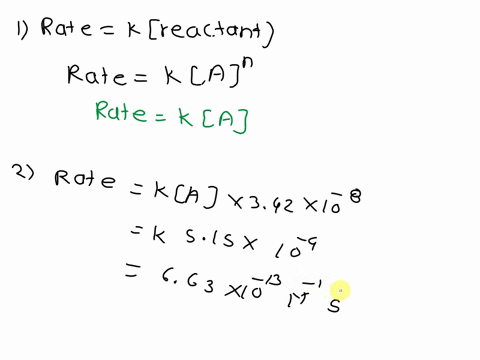 1) Rate = K [reactant)
Rate = K [A]^n
Rate = K [A]
2) Rate = K[A] × 3.42 × 10^-8
= K 5.15 × 10^-9
= 6.63 × 10^-13 M^-1 s